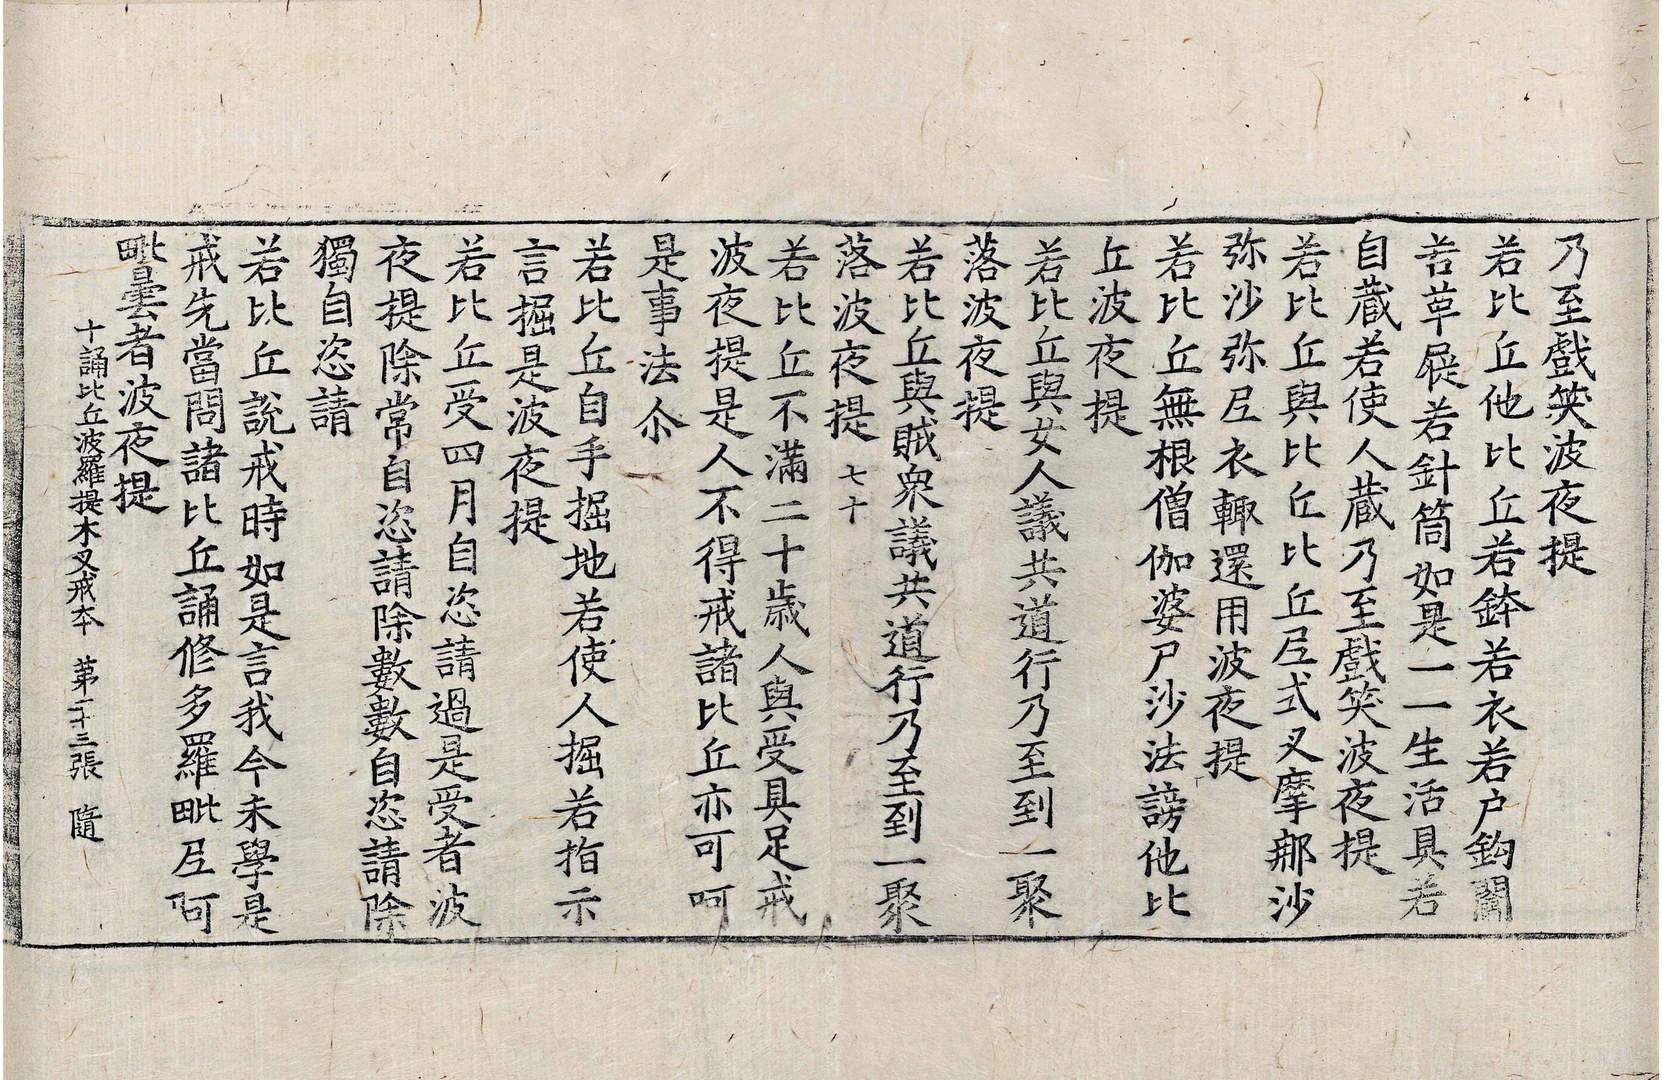 乃至戲笑波夜提
若比丘他比丘若鉢若衣若户鈎闟
若草屣若針筒如是一一生活具若
自蔵若使人蔵乃至戲笑波夜提
若比丘與比丘比丘尼式叉摩那沙
弥沙弥尼衣輙還用波夜提
若比丘無根僧伽婆尸沙法謗他比
丘波夜提
若比丘與女人議共道行乃至到一聚
落波夜提
若比丘與賊衆議共道行乃至到一聚
落波夜提 七十
若比丘不滿二十歳人與受具足戒
波夜提是人不得戒諸比丘亦可呵
是事法尒
若比丘自手掘地若使人掘若指示
言掘是波夜提
若比丘受四月自恣請過是受者波
夜提除常自恣請除數數自恣請除
獨自恣請
若比丘說戒時如是言我今未學是
戒先當問諸比丘誦修多羅毗尼阿
毗曇者波夜提
十誦比丘波羅提木叉戒本 第二十三張 隨